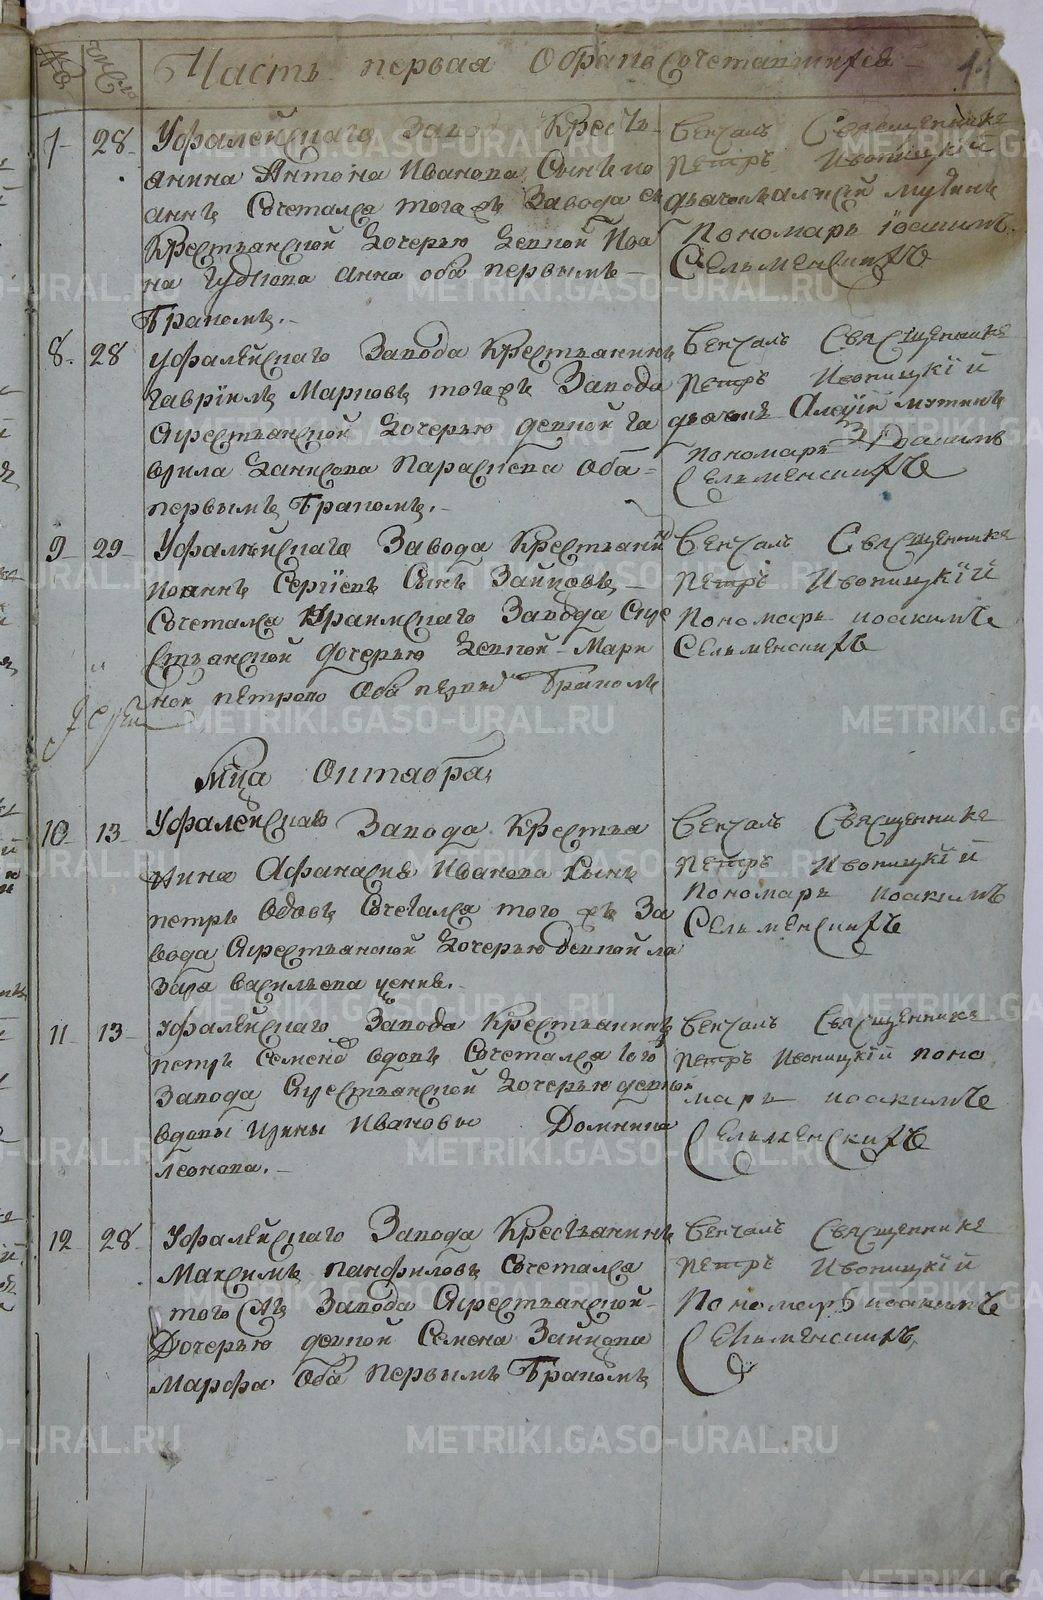 № число Часть первая О бракосочетавшихся
7 28 Уфалейскаго Завод Кресть
янина Антона Иванова Сынъ ио
аннъ Сочетался тогожъ Завода съ
Крестьянской Дочерью девкой Иоа
на Гудкова Анна оба первымъ
Бракомъ.
Венчалъ Священникъ
Петръ Ивоницкий
Пономарь Iоакимъ
Сельменскихъ
8. 28 Уфалейскаго Завода Крестьянинъ
Гаврiилъ Марковъ тогожъ Завода
Крестьянской Дочерью девкой Га
врила Параскева Оба
первымъ Бракомъ.
Венчалъ Священникъ
Петръ Ивоницкiй
дьячекъ Алексiй мутинъ
пономарь Iоакимъ
Сельменскихъ
9 29 Уфалейскаго Завода Крестьянин
иоаннъ Сергiевъ Сынъ Зайцовъ
Сочетался Завода Кре
стьянской дочерью девкой Мари
ной петрово Оба первым Бракомъ
Венчалъ Священникъ
Петръ Ивоницкiй
Пономарь иоакимъ
Сельменскихъ
Мца Октября
10 13 Уфалейскаго Завода Крестья
нина Афанасия Иванова Сынъ
петръ вдовъ Сочетался того жъ За
вода Крестьянской Дочерью девкой ла
заря василъева
Венчалъ Священникъ
Петръ Ивоницкiй
Пономарь иоакимъ
Сельменскихъ
11 13 Уфалейскаго Завода Крестьянинъ
петръ Семено вдовъ Сочетался того
Завода Крестьянской Дочерью
вдовы Ирины Ивановы Домника
леонова.
Венчалъ Священникъ
Петръ Ивоницкiй поно
марь иоакимъ
Сельменскихъ
12 28 Уфалейскаго Завода Крестьянинъ
Максимъ панфиловъ Сочетался
того жъ Завода Крестьянской
Дочерью девкой Семена Зайкова
Марфа Оба первымъ Бракомъ
Венчалъ Священникъ
Петръ Ивоницкiй
Пономарь иоакимъ
Сельменскихъ
METRIKI.GASO-URAL.RU